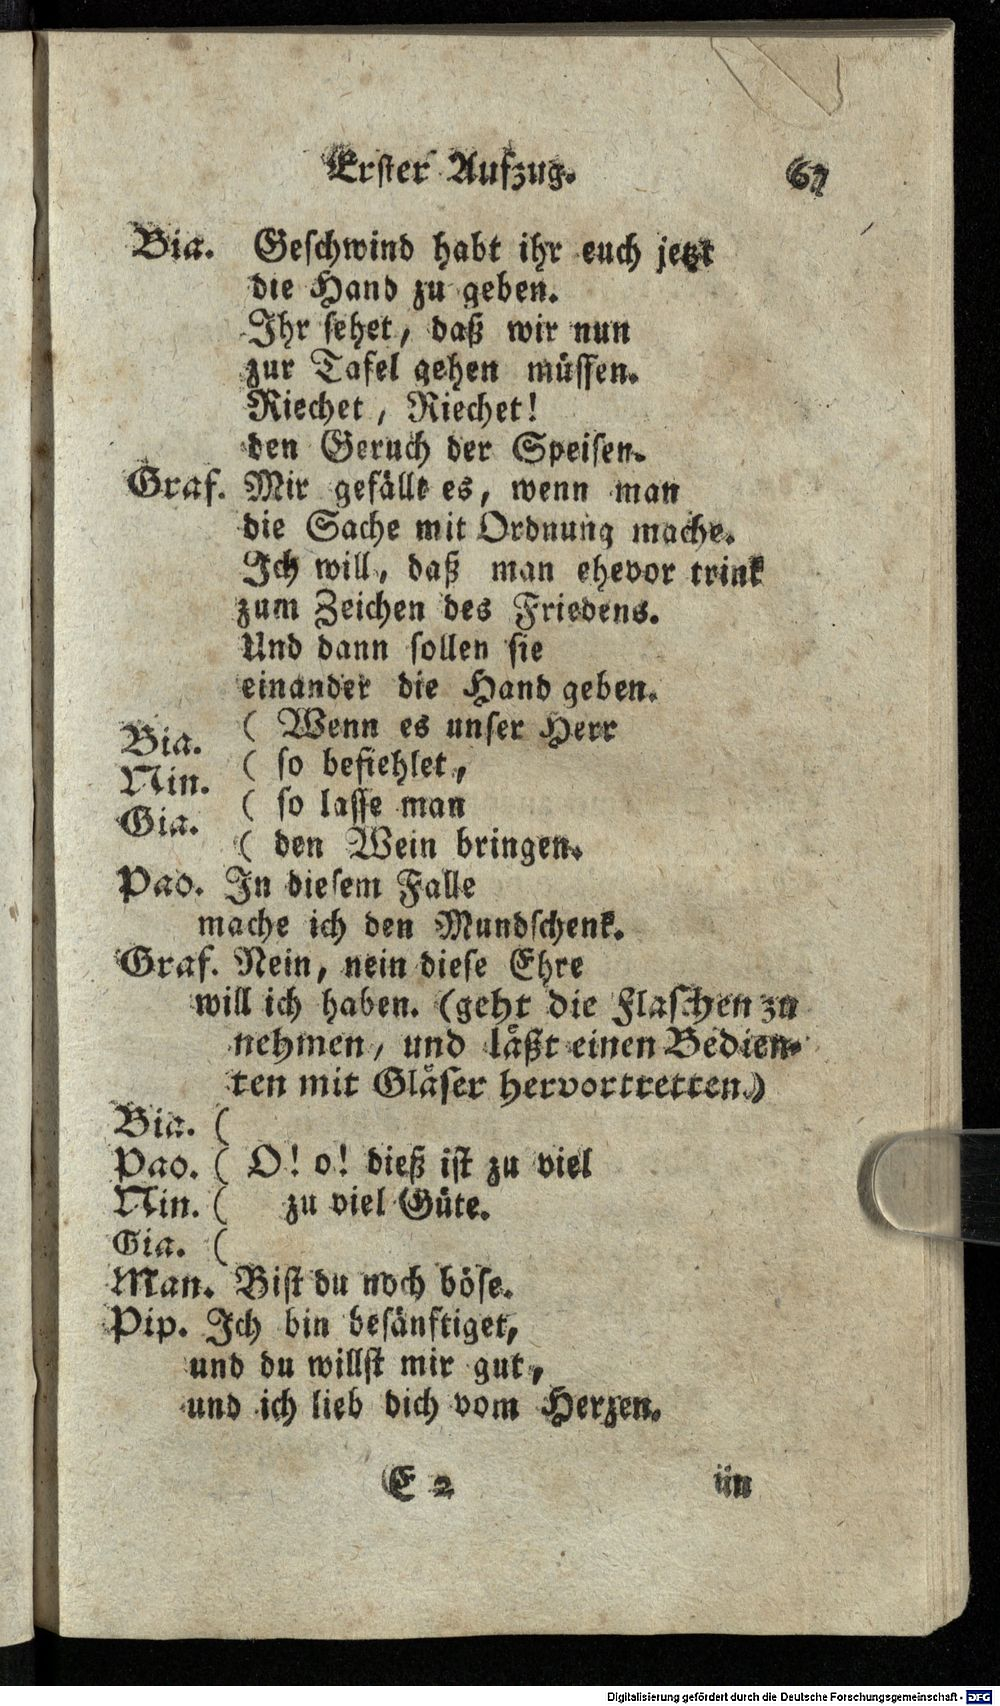 Erster Aufzug. 67
Bia. Geschwind habt ihr euch jetzt
die Hand zu geben.
Ihr sehet, daß wir nun
zur Tafel gehen müssen.
Riechet, Riechet!
den Geruch der Speisen.
Graf. Mir gefällt es, wenn man
die Sache mit Ordnung mache.
Ich will, daß man ehevor trink
zum Zeichen des Friedens.
Und dann sollen sie
einander die Hand geben.
( Wenn es unser Herr
Bia. ( so befiehlet,
Nin. ( so lasse man
Gia. ( den Wein bringen.
Pao. In diesem Falle
mache ich den Mundschenk.
Graf. Nein, nein diese Ehre
will ich haben. (geht die Flaschen zu
nehmen, und läßt einen Bedien-
ten mit Gläser hervortretten.)
Bia. (
Pao. ( O! o! dieß ist zu viel
Nin. ( zu viel Güte.
Gia. (
Man. Bist du noch böse.
Pip. Ich bin besänftiget,
und du willst mir gut,
und ich lieb dich vom Herzen.
E 2
Digitalisierung gefördert durch die Deutsche Forschungsgemeinschaft - DFG